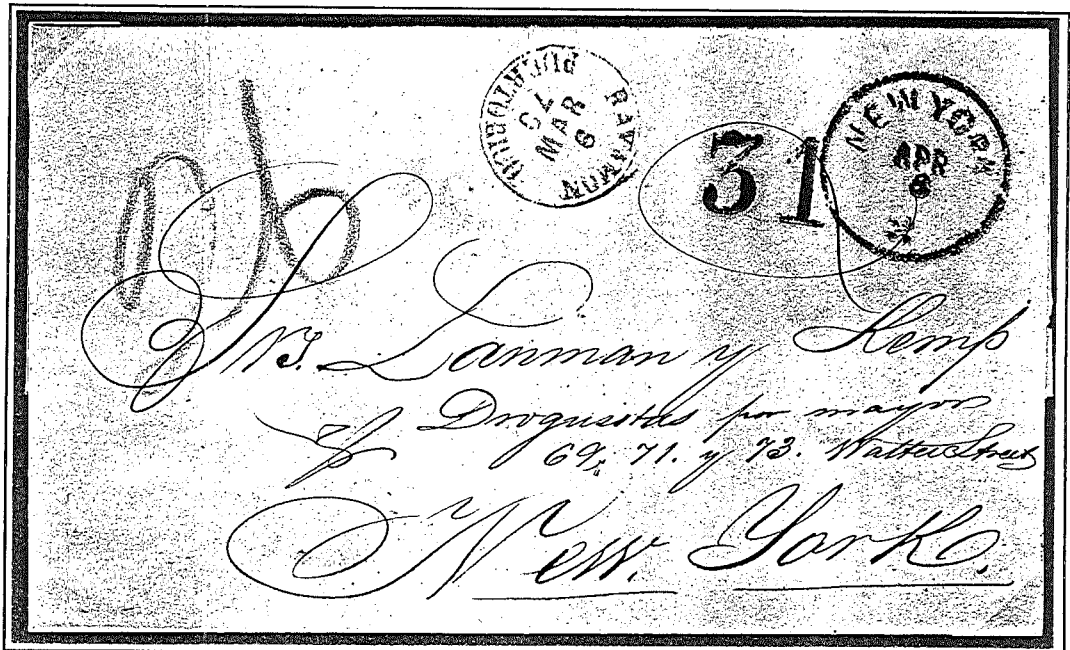 BAYAMON
MAR
6
31
NEW YORK
APR
Srs. Lanman y Kemp
Droguistas por mayor
69, 71. y 73. Watter Street
New. York.